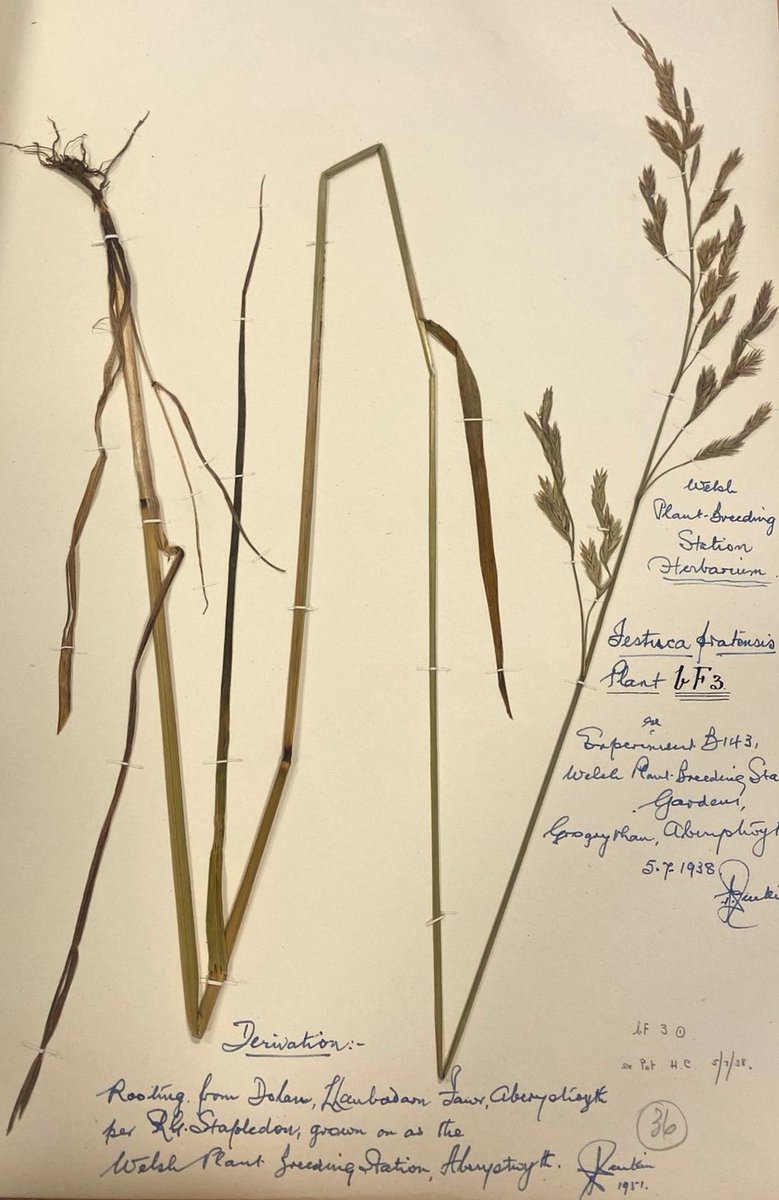 Welsh
Plant-Breeding
Station
Herbarium.
Festuca pratensis
Plant bF3.
ex
Experiment B143,
Welsh Plant-Breeding Sta
Gardens,
Gogerddan, Aberystwyt
5.7.1938
bF 3 ⊙
ex Pot H.C. 5/7/38.
36
Derivation:-
Rooting from Dolau, Llanbadarn Fawr, Aberystwyth
per R.G. Stapledon, grown on at the
Welsh Plant-Breeding Station, Aberystwyth.
1951.